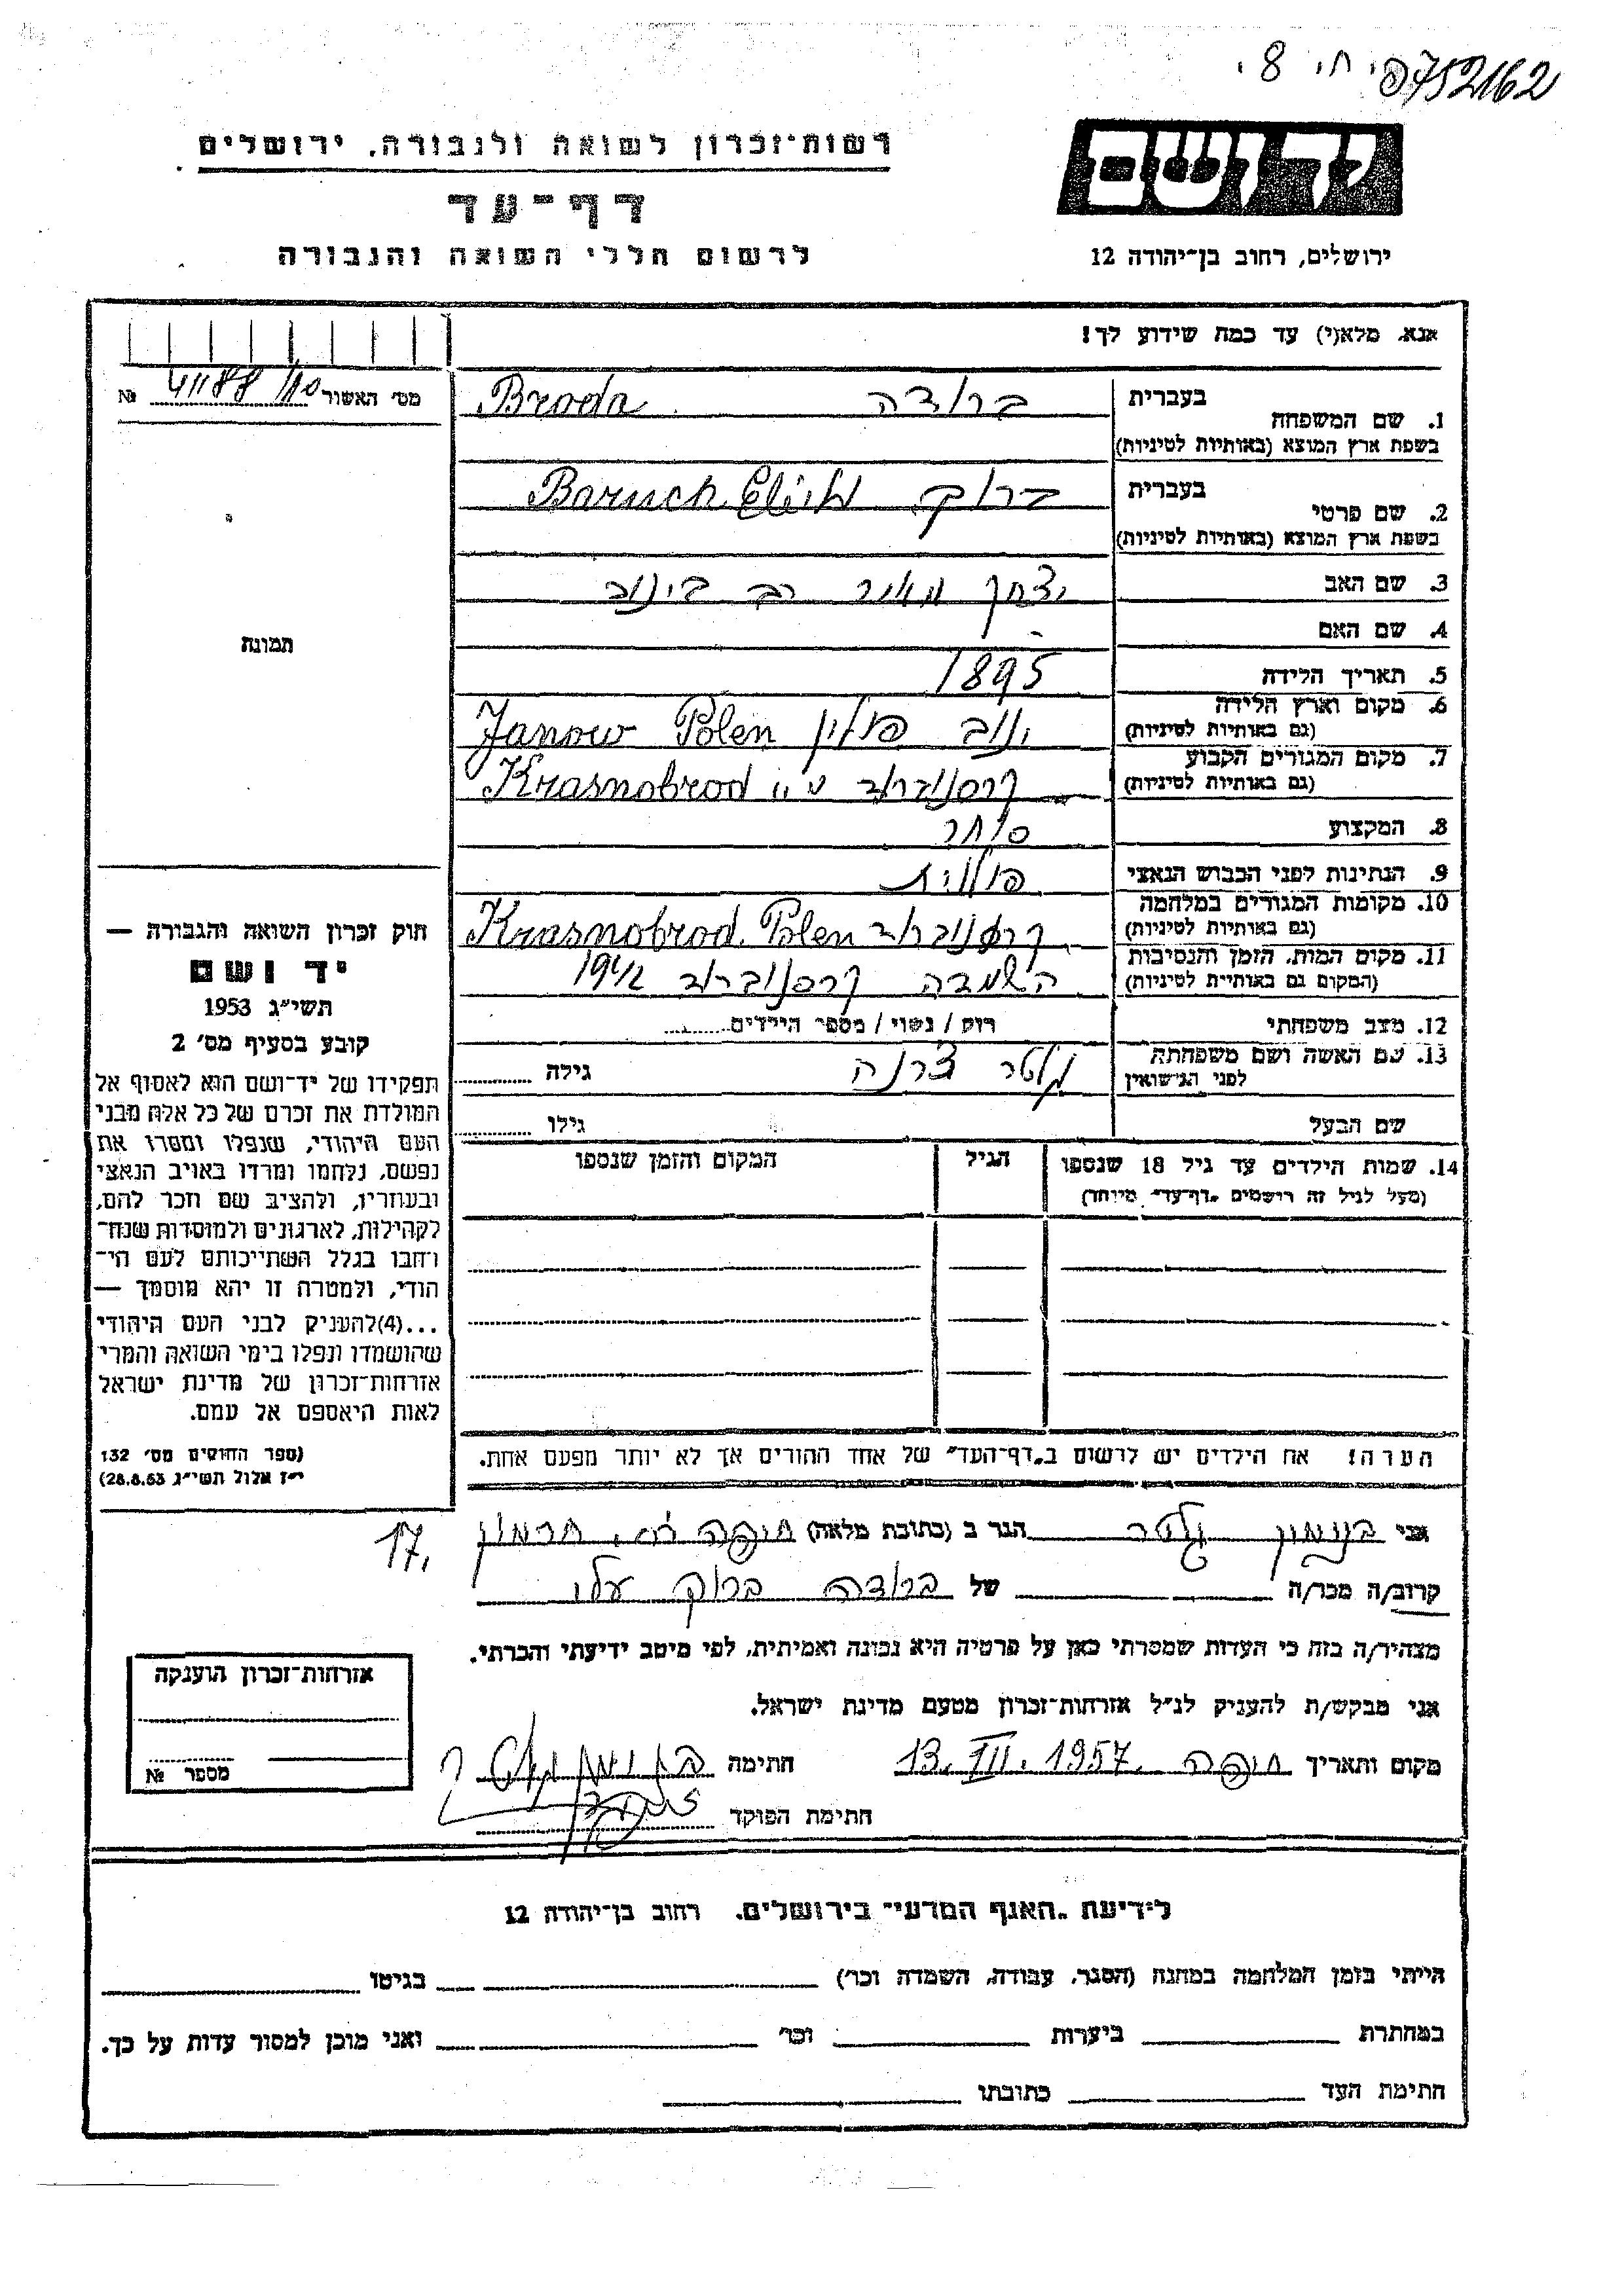 752162
יד ושם
רשות־זכרון לשואה ולגבורה, ירושלים
דף־עד
לרשום חללי השואה והגבורה
ירושלים, רחוב בן־יהודה 12
אנא, מלא(י) עד כמה שידוע לך!
מס׳ האשור №
1. שם המשפחה בעברית ברודה Broda
בשפת ארץ המוצא (באותיות לטיניות)
2. שם פרטי בעברית ברוך Baruch
בשפת ארץ המוצא (באותיות לטיניות)
3. שם האב יצחק מאיר
4. שם האם -
5. תאריך הלידה 1895
6. מקום וארץ הלידה ינוב פולין Janow Polen
(גם באותיות לטיניות)
7. מקום המגורים הקבוע קרסנוברוד Krasnobrod
(גם באותיות לטיניות)
8. המקצוע סוחר
9. הנתינות לפני הכבוש הנאצי פולנית
10. מקומות המגורים במלחמה קרסנוברוד Krasnobrod, Polen
(גם באותיות לטיניות)
11. מקום המות, הזמן והנסיבות השמדה קרסנוברוד 1942
(המקום גם באותיות לטיניות)
12. מצב משפחתי רווק / נשוי / מספר הילדים
13. שם האשה ושם משפחתה גילה
לפני הנישואין
שם הבעל גילו
14. שמות הילדים עד גיל 18 שנספו הגיל המקום והזמן שנספו
(מעל לגיל זה רושמים „דף־עד״ מיוחד)
הערה! את הילדים יש לרשום ב„דף־העד״ של אחד ההורים אך לא יותר מפעם אחת.
תמונה
חוק זכרון השואה והגבורה —
יד ושם
תשי״ג 1953
קובע בסעיף מס׳ 2
תפקידו של יד־ושם הוא לאסוף אל
המולדת את זכרם של כל אלה מבני
העם היהודי, שנפלו ומסרו את
נפשם, נלחמו ומרדו באויב הנאצי
ובעוזריו, ולהציב שם וזכר להם,
לקהילות, לארגונים ולמוסדות שנח־
רבו בגלל השתייכותם לעם הי־
הודי, ולמטרה זו יהא מוסמך —
...(4)להעניק לבני העם היהודי
שהושמדו ונפלו בימי השואה והמרי
אזרחות־זכרון של מדינת ישראל
לאות היאספם אל עמם.
(ספר החוקים מס׳ 132
י״ז אלול תשי״ג 28.8.53)
אני בנימין הגר ב (כתובת מלאה) חיפה רח׳ חרמון
17.
קרוב/ה מכר/ה של ברודה ברוך
מצהיר/ה בזה כי העדות שמסרתי כאן על פרטיה היא נכונה ואמיתית, לפי מיטב ידיעתי והכרתי.
אני מבקש/ת להעניק לנ״ל אזרחות־זכרון מטעם מדינת ישראל.
מקום ותאריך חיפה 13.III.1957 חתימה
חתימת הפוקד
אזרחות־זכרון הוענקה
מספר №
לידיעת „האגף המדעי״ בירושלים, רחוב בן־יהודה 12
הייתי בזמן המלחמה במחנה (הסגר, עבודה, השמדה וכו׳) בגיטו
במחתרת ביערות וכו׳ ואני מוכן למסור עדות על כך.
חתימת העד כתובתו